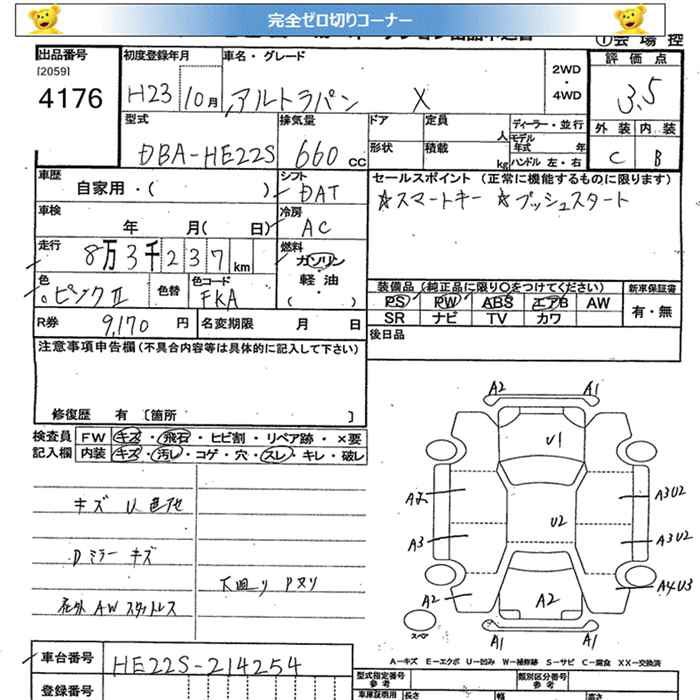 完全ゼロ切りコーナー
① 会 場 控
出品番号
[2059]
4176
初度登録年月
H23 10月
車名・グレード
アルトラパン X
2WD
・
4WD
評 価 点
3.5
外 装 内 装
C B
型式
DBA-HE22S
排気量
660 cc
ドア
定員
人
形状
積載
kg
ディーラー・並行
モデル年式 年
ハンドル 左・右
車歴
自家用・( )
シフト
DAT
車検
年 月( 日)
冷房
AC
走行
8万3千237 km
燃料
ガソリン
・
軽 油
( )
色
ピンクⅡ
色替
色コード
FKA
セールスポイント (正常に機能するものに限ります)
☆スマートキー ☆プッシュスタート
装備品(純正品に限り○をつけてください)
新車保証書
PS PW ABS エアB AW
有・無
SR ナビ TV カワ
R券 9,170 円
名変期限 月 日
後日品
注意事項申告欄(不具合内容等は具体的に記入して下さい)
修復歴 有 〔箇所 〕
検査員記入欄
FW キズ・飛石・ヒビ割・リペア跡・×要
内装 キズ・汚レ・コゲ・穴・スレ・キレ・破レ
キズ U 色他
Dミラー キズ
下廻り Pヌリ
社外AWスタットレス
A2 A1
U1
A2 A3U2
U2
A3 A3U2
A2 A2 A4U3
スペア
A1 A1
A-キズ E-エクボ U-凹み W-補修跡 S-サビ C-腐食 XX-交換済
車台番号
HE22S-214254
登録番号
型式指定番号
参 考
類別区分番号
参 考
車庫証明用
参 考
長さ
幅
高さ